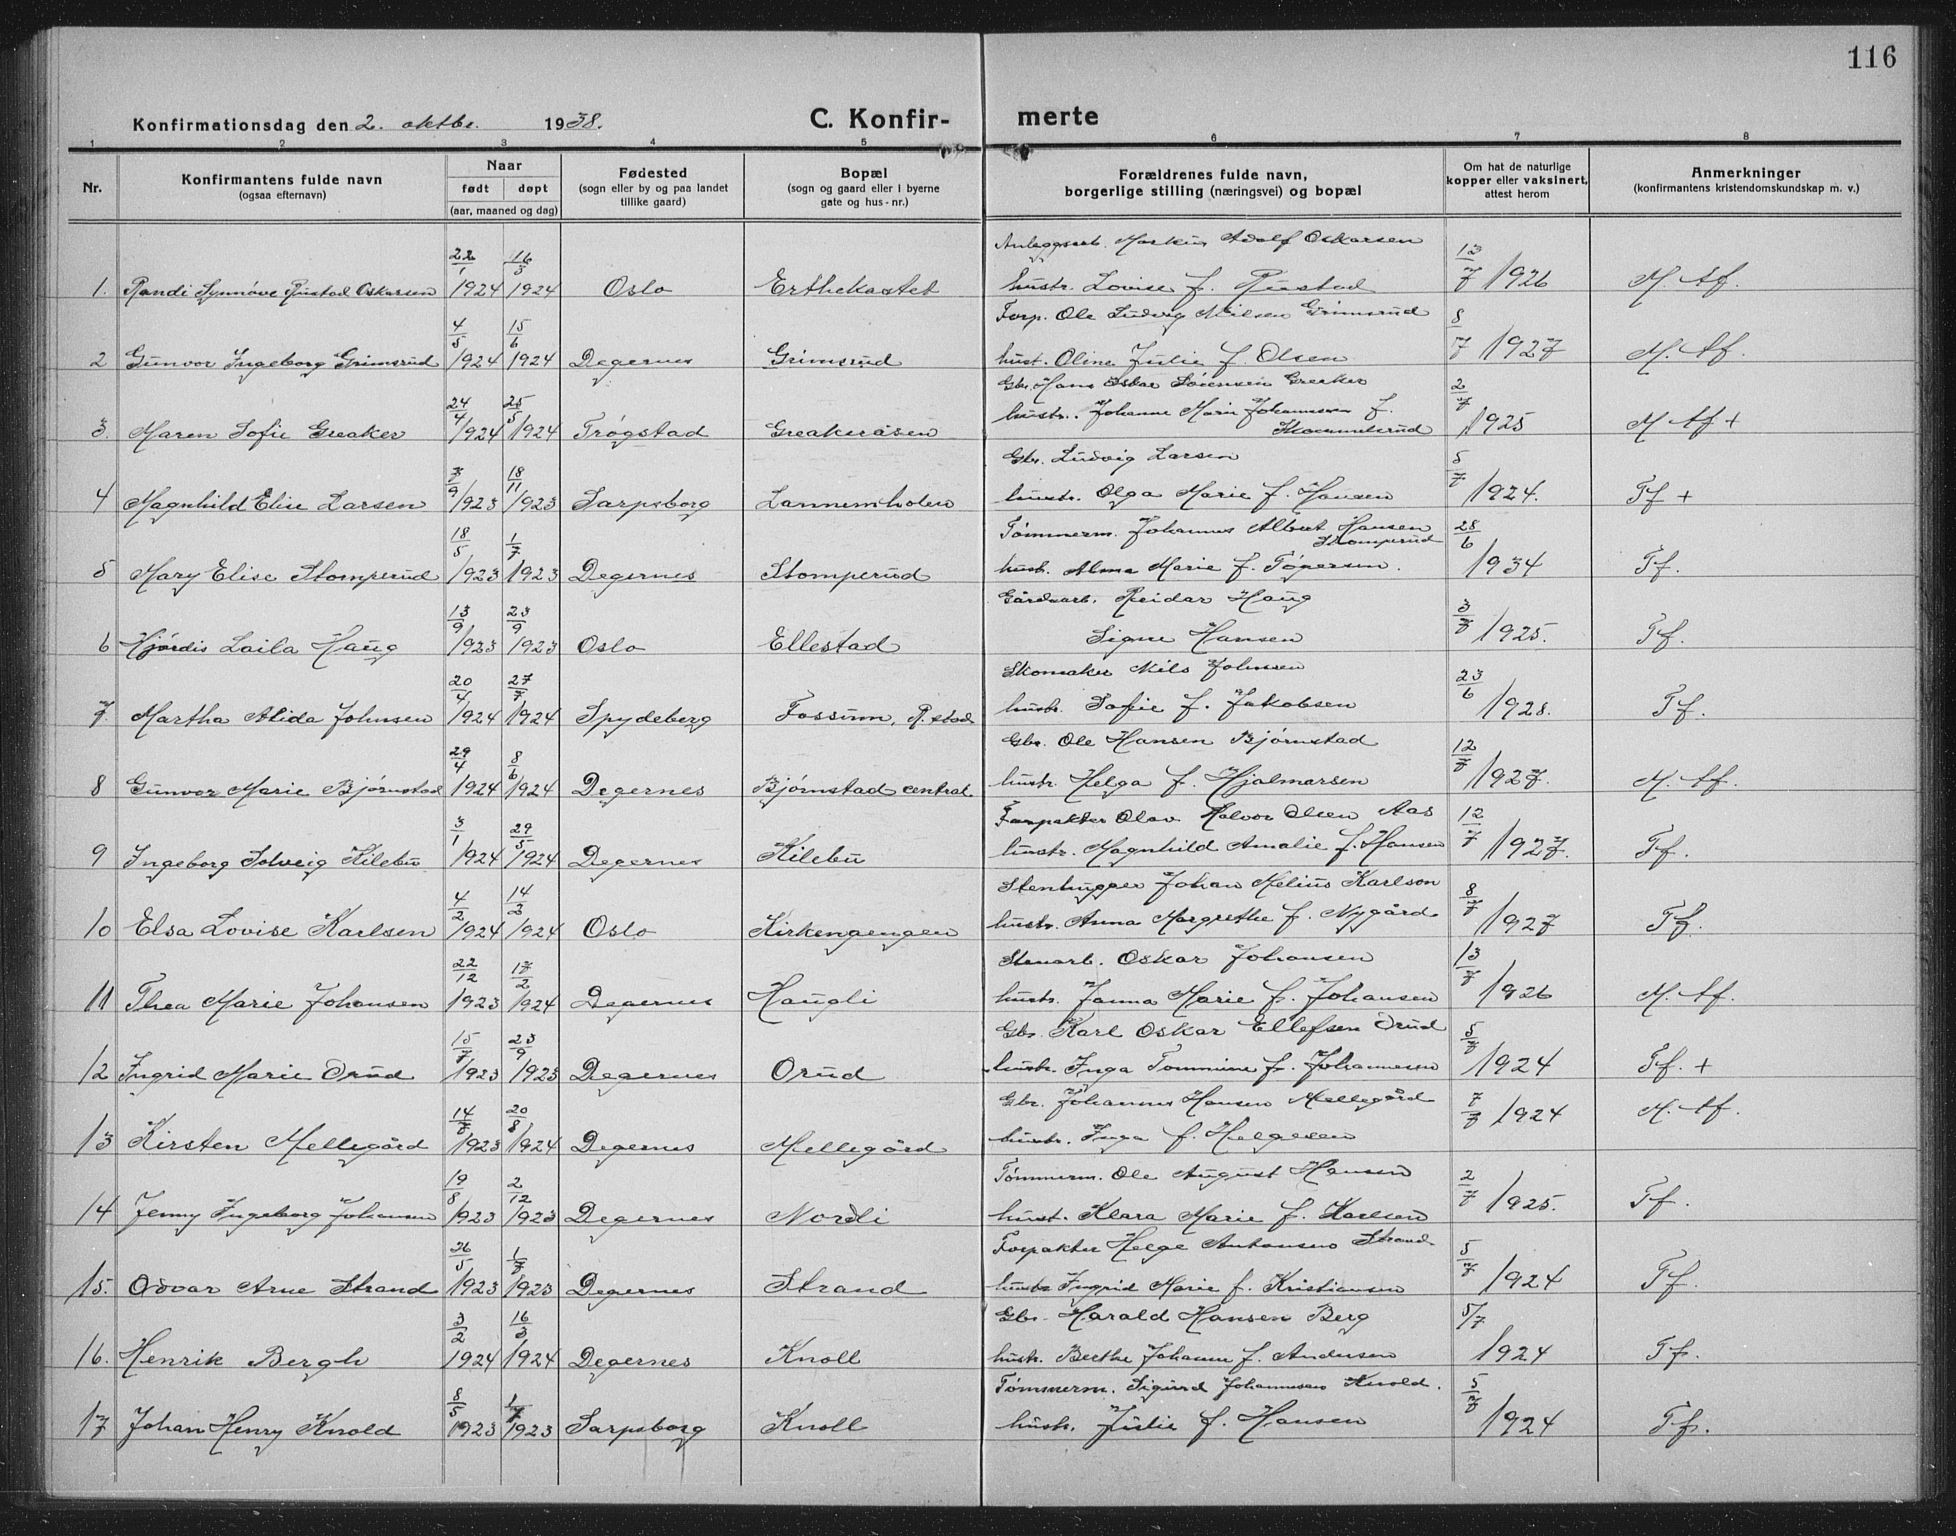 116
Konfirmationsdag den 2. oktbr. 1938.
C. Konfirmerte
1 2 3 4 5 6 7 8
Nr.
Konfirmantens fulde navn (ogsaa efternavn)
Naar født døpt (aar, maaned og dag)
Fødested (sogn eller by og paa landet tillike gaard)
Bopæl (sogn og gaard eller i byerne gate og hus-nr.)
Forældrenes fulde navn, borgerlige stilling (næringsvei) og bopæl
Om hat de naturlige kopper eller vaksinert, attest herom
Anmerkninger (konfirmantens kristendomskundskap m. v.)
Anleggsarb. Markus Adolf Oskarsen
1. Randi Synnøve Rustad Oskarsen 22/1 1924 16/3 1924 Oslo Erthekastet hustr. Lovise f. Rustad 12/7 1926 M. Af.
Forp. Ole Ludvig Nilsen Grimsrud
2 Gunvor Ingeborg Grimsrud 4/5 1924 15/6 1924 Degernes Grimsrud hust. Oline Julie f. Olsen 8/7 1927 M. Af.
Gbr. Hans Oskar Sørensen Greaker
3. Maren Sofie Greaker 24/4 1924 25/5 1924 Trøgstad Greakeråsen hustr. Johanne Marie Johannesen f. 2/7 1925 M Af +
4 Magnhild Elise Larsen 7/9 1923 18/11 1923 Sarpsborg Lannemholen Gbr. Ludvig Larsen
hustr. Olga Marie f. Hansen 5/7 1924. Tf +
Tømmerm. Johannes Albert Hansen Stomperud
5 Mary Elise Stomperud 18/5 1923 1/7 1923 Degernes Stomperud hust. Alma Marie f. Tøgersen. 28/6 1934 Tf.
Gårdsarb. Reidar Haug
6 Hjørdis Laila Haug 13/9 1923 23/9 1923 Oslo Ellestad Signe Hansen 3/7 1925. Tf.
Skomaker Nils Johnsen
7. Martha Alida Johnsen 20/4 1924 27/7 1924 Spydeberg Fossum, R.stad hustr. Sofie f. Jakobsen 23/6 1928. Tf.
Gbr. Ole Hansen Bjørnstad
8 Gunvor Marie Bjørnstad 29/4 1924 8/6 1924 Degernes Bjørnstad central hustr. Helga f. Hjalmarsen 12/7 1927. M. Af.
Forpakter Olav Halvor Olsen Aas
9 Ingeborg Solveig Kilebu 3/1 1924 29/5 1924 Degernes Kilebu hustr. Magnhild Amalie f. Hansen 12/7 1927. Tf.
Stenhugger Johan Melius Karlson
10 Elsa Lovise Karlsen 4/2 1924 14/2 1924 Oslo Kirkengengen hustr. Anna Margrethe f. Nygård 8/7 1927 Tf.
Stenarb. Oskar Johansen
11 Thea Marie Johansen 22/12 1923 17/2 1924 Degernes Haugli hustr. Janna Marie f. Johansen 13/7 1926 M. Af.
Gbr. Karl Oskar Ellefsen Orud
12 Ingrid Marie Orud 15/7 1923 23/9 1923 Degernes Orud hustr. Inga Tommine f. Johannesen 5/7 1924 Tf. +
Gbr. Johannes Hansen Mellegård
13 Kirsten Mellegård 14/7 1923 20/8 1924 Degernes Mellegård hustr. Inga f. Helgesen 7/7 1924 M. Af.
Tømmerm. Ole August Hansen
14 Jenny Ingeborg Johansen 19/8 1923 2/12 1923 Degernes Nordli hust. Klara Marie f. Karlsen 2/7 1925. Tf.
Forpakter Helge Antonsen Strand
15. Odvar Arne Strand 26/5 1923 1/7 1923 Degernes Strand hustr Ingrid Marie f. Kristiansen 5/7 1924 Tf.
Gbr. Harald Hansen Berg
16. Henrik Bergh 3/2 1924 16/3 1924 Degernes Knoll hustr. Berthe Johanne f. Andersen 5/7 1924 Tf.
Tømmerm. Sigurd Johannesen Knold.
17 Johan Henry Knold 8/5 1923 1/7 1923 Sarpsborg Knoll hustr. Julie f. Hansen 5/7 1924 Tf.